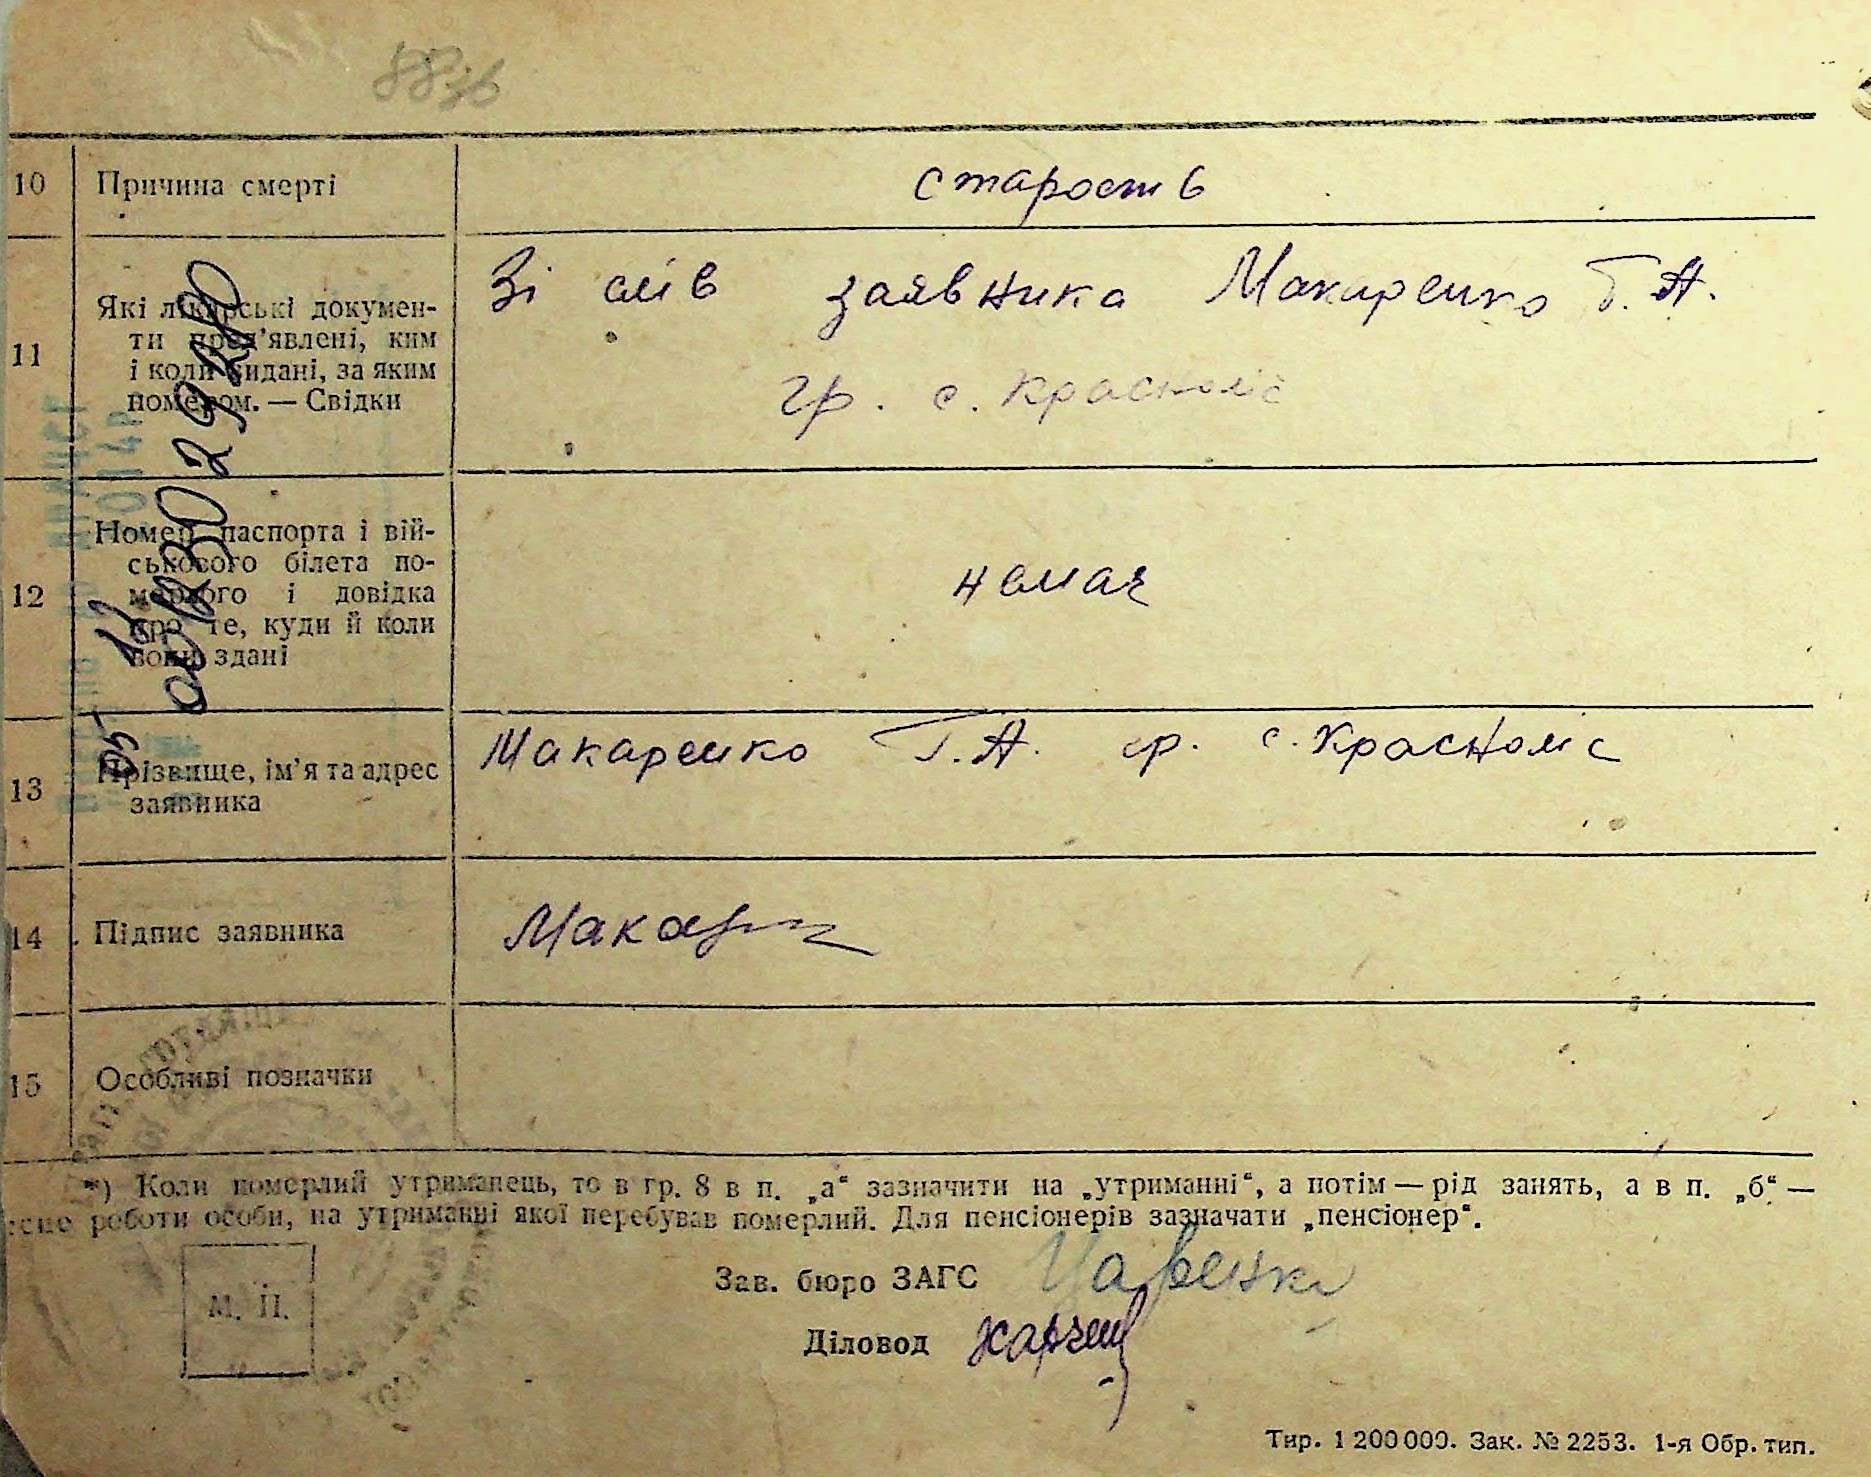 10 Причина смерті старость
Зі слів заявника Макаренко Г. А.
гр. с. Краснолис
11 Які лікарські докумен-
ти пред'явлені, ким
і коли видані, за яким
номером. — Свідки
12 Номер паспорта і вій-
ськового білета по-
мерлого і довідка
про те, куди й коли
вони здані
немає
13 Прізвище, ім'я та адрес
заявника
Макаренко Г. А. гр. с. Краснолис
14 Підпис заявника
15 Особливі позначки
*) Коли померлий утриманець, то в гр. 8 в п. „а“ зазначити на „утриманні“, а потім — рід занять, а в п. „б“ —
роботи особи, на утриманні якої перебував померлий. Для пенсіонерів зазначати „пенсіонер“.
М. П.
Зав. бюро ЗАГС
Діловод
Тир. 1 200 000. Зак. № 2253. 1-я Обр. тип.